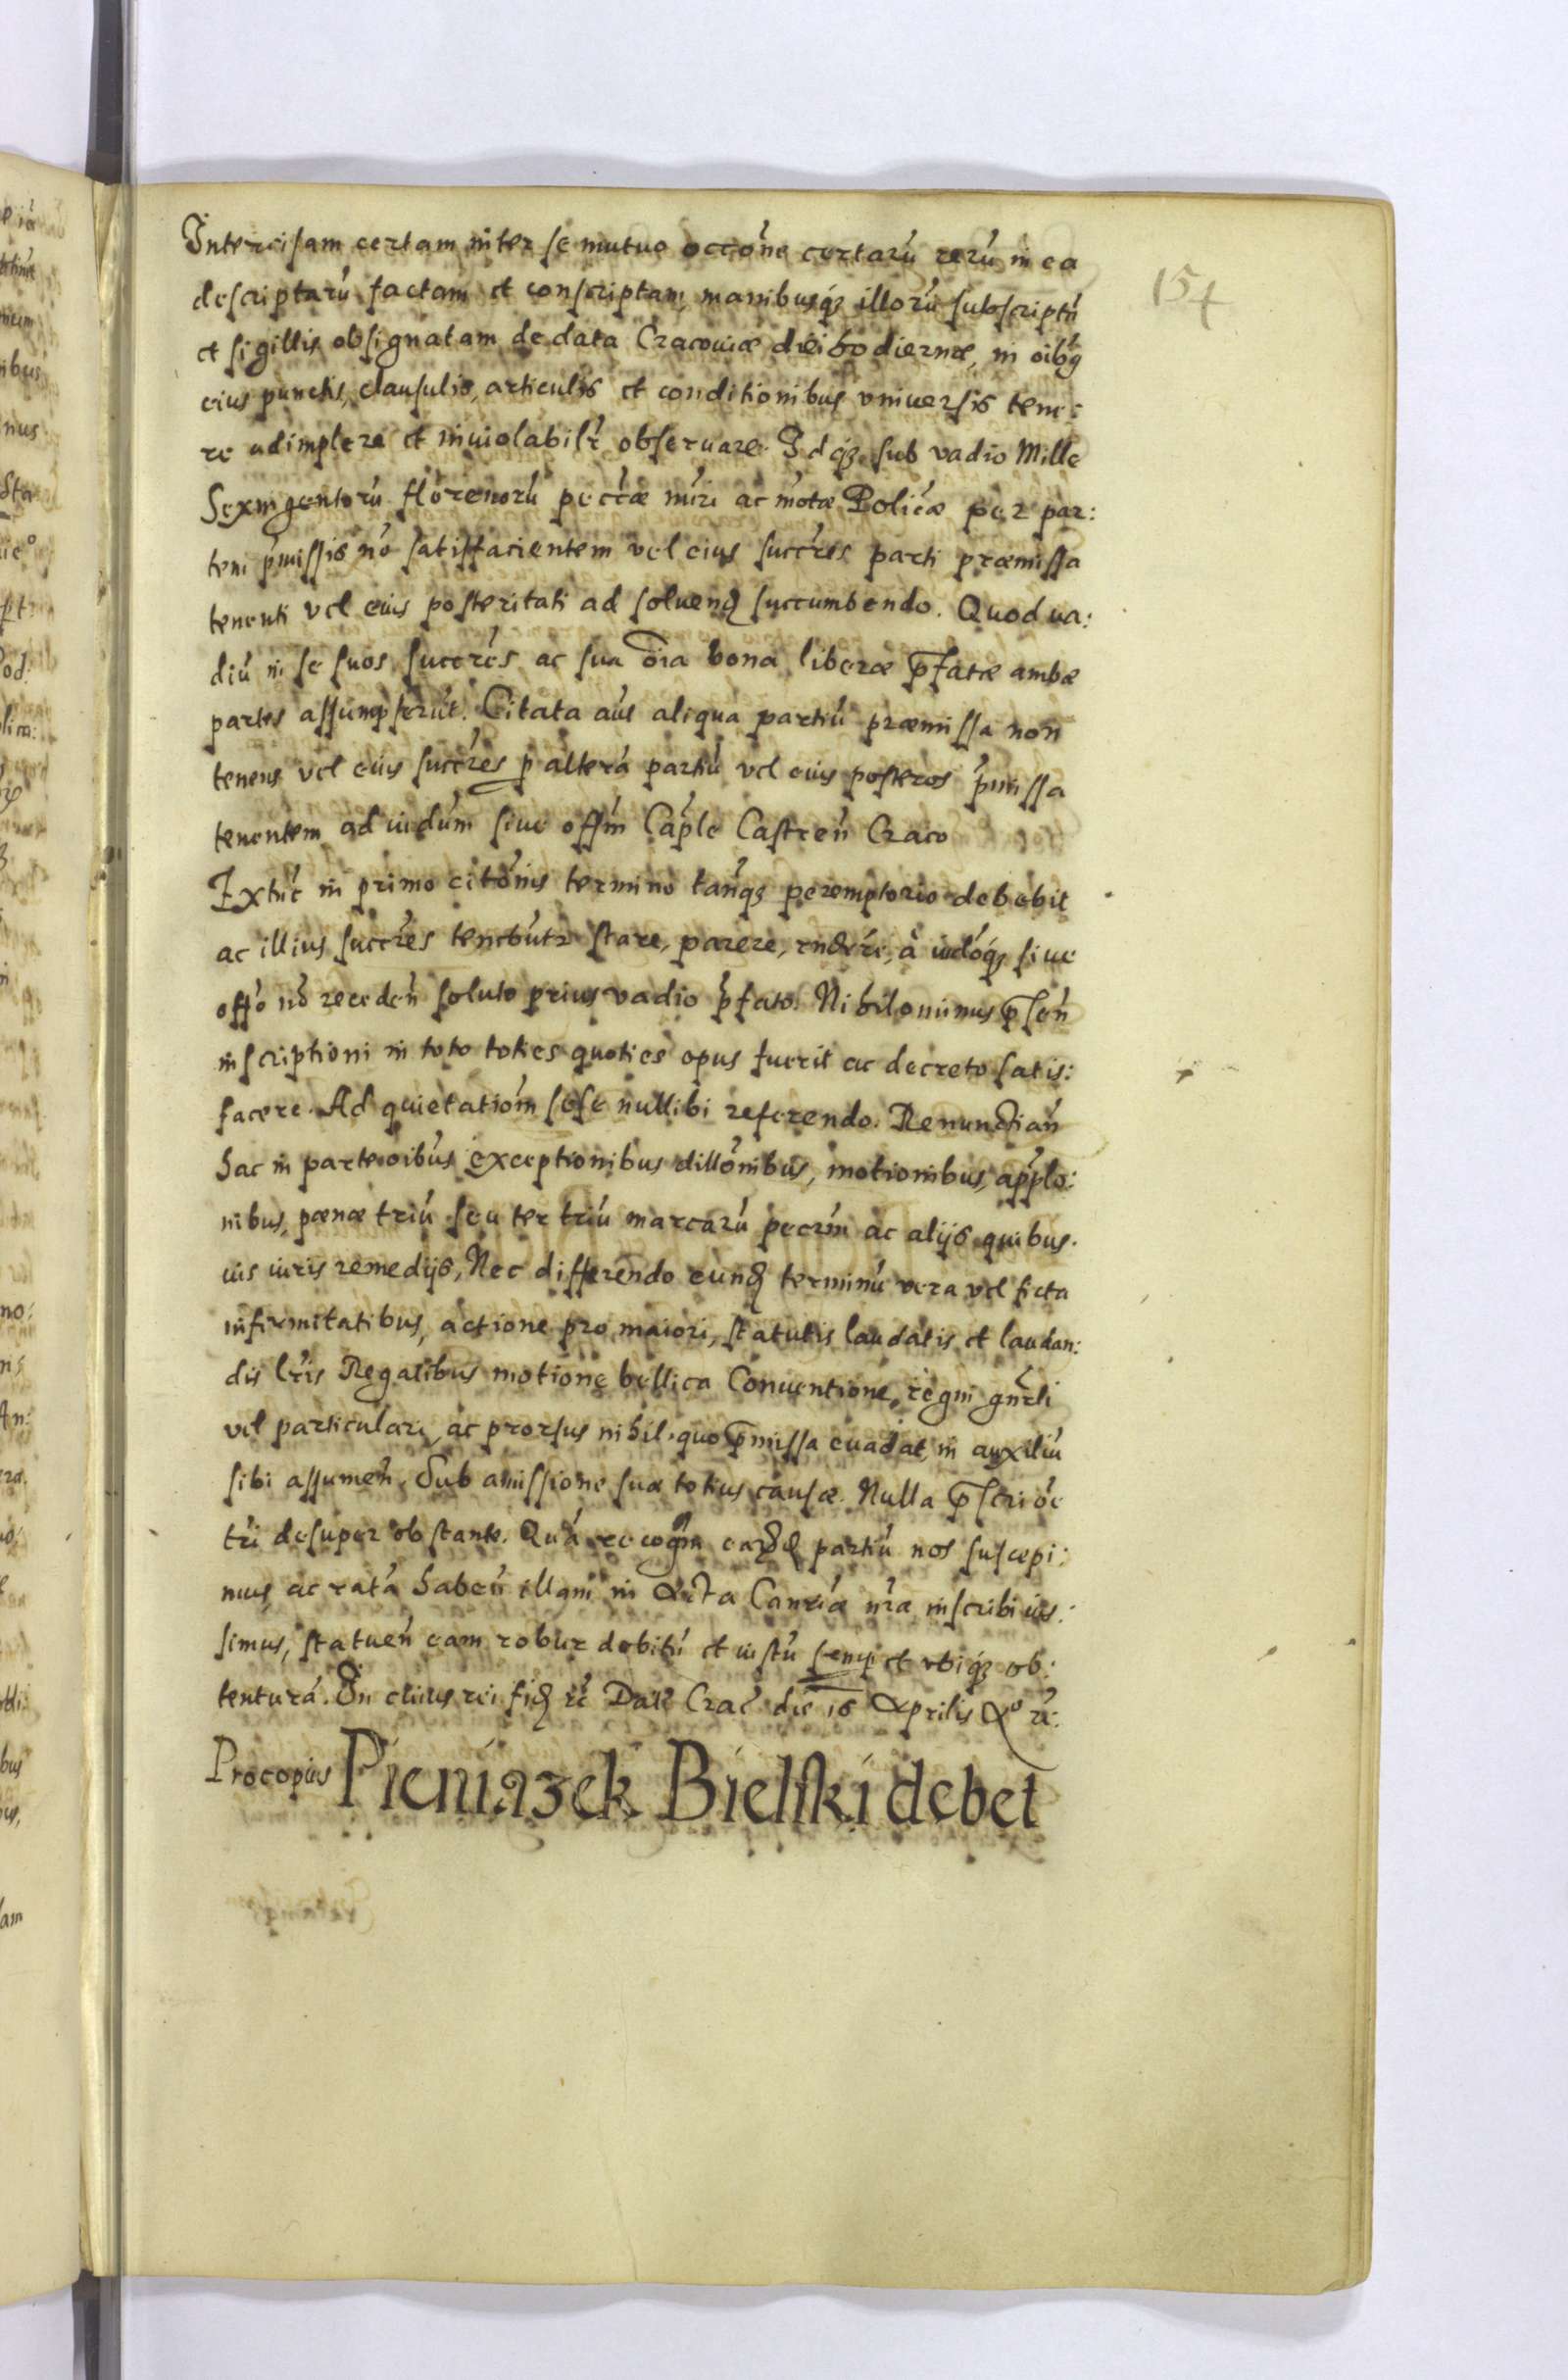 Intercisam certam inter se mutuo occõne certarũ rerũ in ea
descriptarũ factam et conscriptam manibusq; illorũ subscriptã
et sigillis obsignatam de data Cracouiæ diei hodiernæ, in oibus
eius punctis, clausulis, articulis et conditionibus vniuersis tene:
re adimplere et inuiolabilr obseruare. Idq; sub vadio Mille
Sexingentorũ florenorũ pecũæ nũri ac mõtæ Policæ per par:
tem pmissis nõ satisfacientem vel eius succres parti præmissa
tenenti vel eius posteritati ad soluend succumbendo. Quod va:
diũ in se suos succres ac sua oĩa bona libere pfatæ ambæ
partes assumpserũt. Citata aũs aliqua partiũ præmissa non
tenens vel eius succres p alterã partiũ vel eius posteros pmissa
tenentem ad iudũm siue offm Caple Castreñ Craco
Extũc in primo citõnis termino tanq; peremptorio debebit
ac illius succres tenebũtr stare, parere, rndere, à iudõq; siue
offõ nõ recedeñ soluto prius vadio pfato. Nihilominus pseñ
inscriptioni in toto toties quoties opus fuerit ac decreto satis:
facere. Ad quietatiõm sese nullibi referendo. Renunctiañ
hac in parte oibus exceptionibus dillõnibus, motionibus, applõ:
nibus, pænæ triũ seu ter triũ marcarũ pecrm ac alijs quibus.
uis iuris remedijs, Nec differendo eund terminũ vera vel ficta
infirmitatibus, actione pro maiori, statutis laudatis et laudan:
dis lris Regalibus motione bellica Conuentione regni gnrli
vel particulari, ac prorsus nihil quo pmissa euadat, in auxiliũ
sibi assumeñ. Sub amissione suæ totius causæ. Nulla pscriõe
tri desuper obstante. Quã recogm eard partiũ nos suscepi:
mus, ac ratã habeñ illam in Acta Canriæ nrã inscribi ius:
simus, statueñ eam robur debitũ et iustũ semp et vbiq; ob:
tenturã. In cuius rei fid rc Dat Crac die 16 Aprilis Aº rc.
Procopius Pieniązek Bielski debet
154